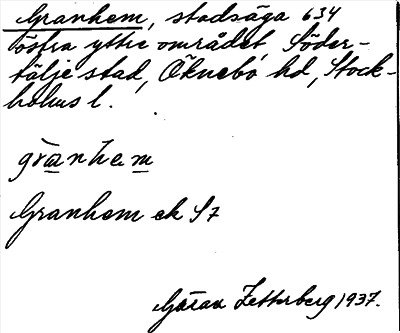 Granhem, stadsäga 634
östra yttre området, Söder-
tälje stad, Öknebo hd, Stock-
holms l.
grànhem
Granhem ek 57
Göran Zetterberg 1937.